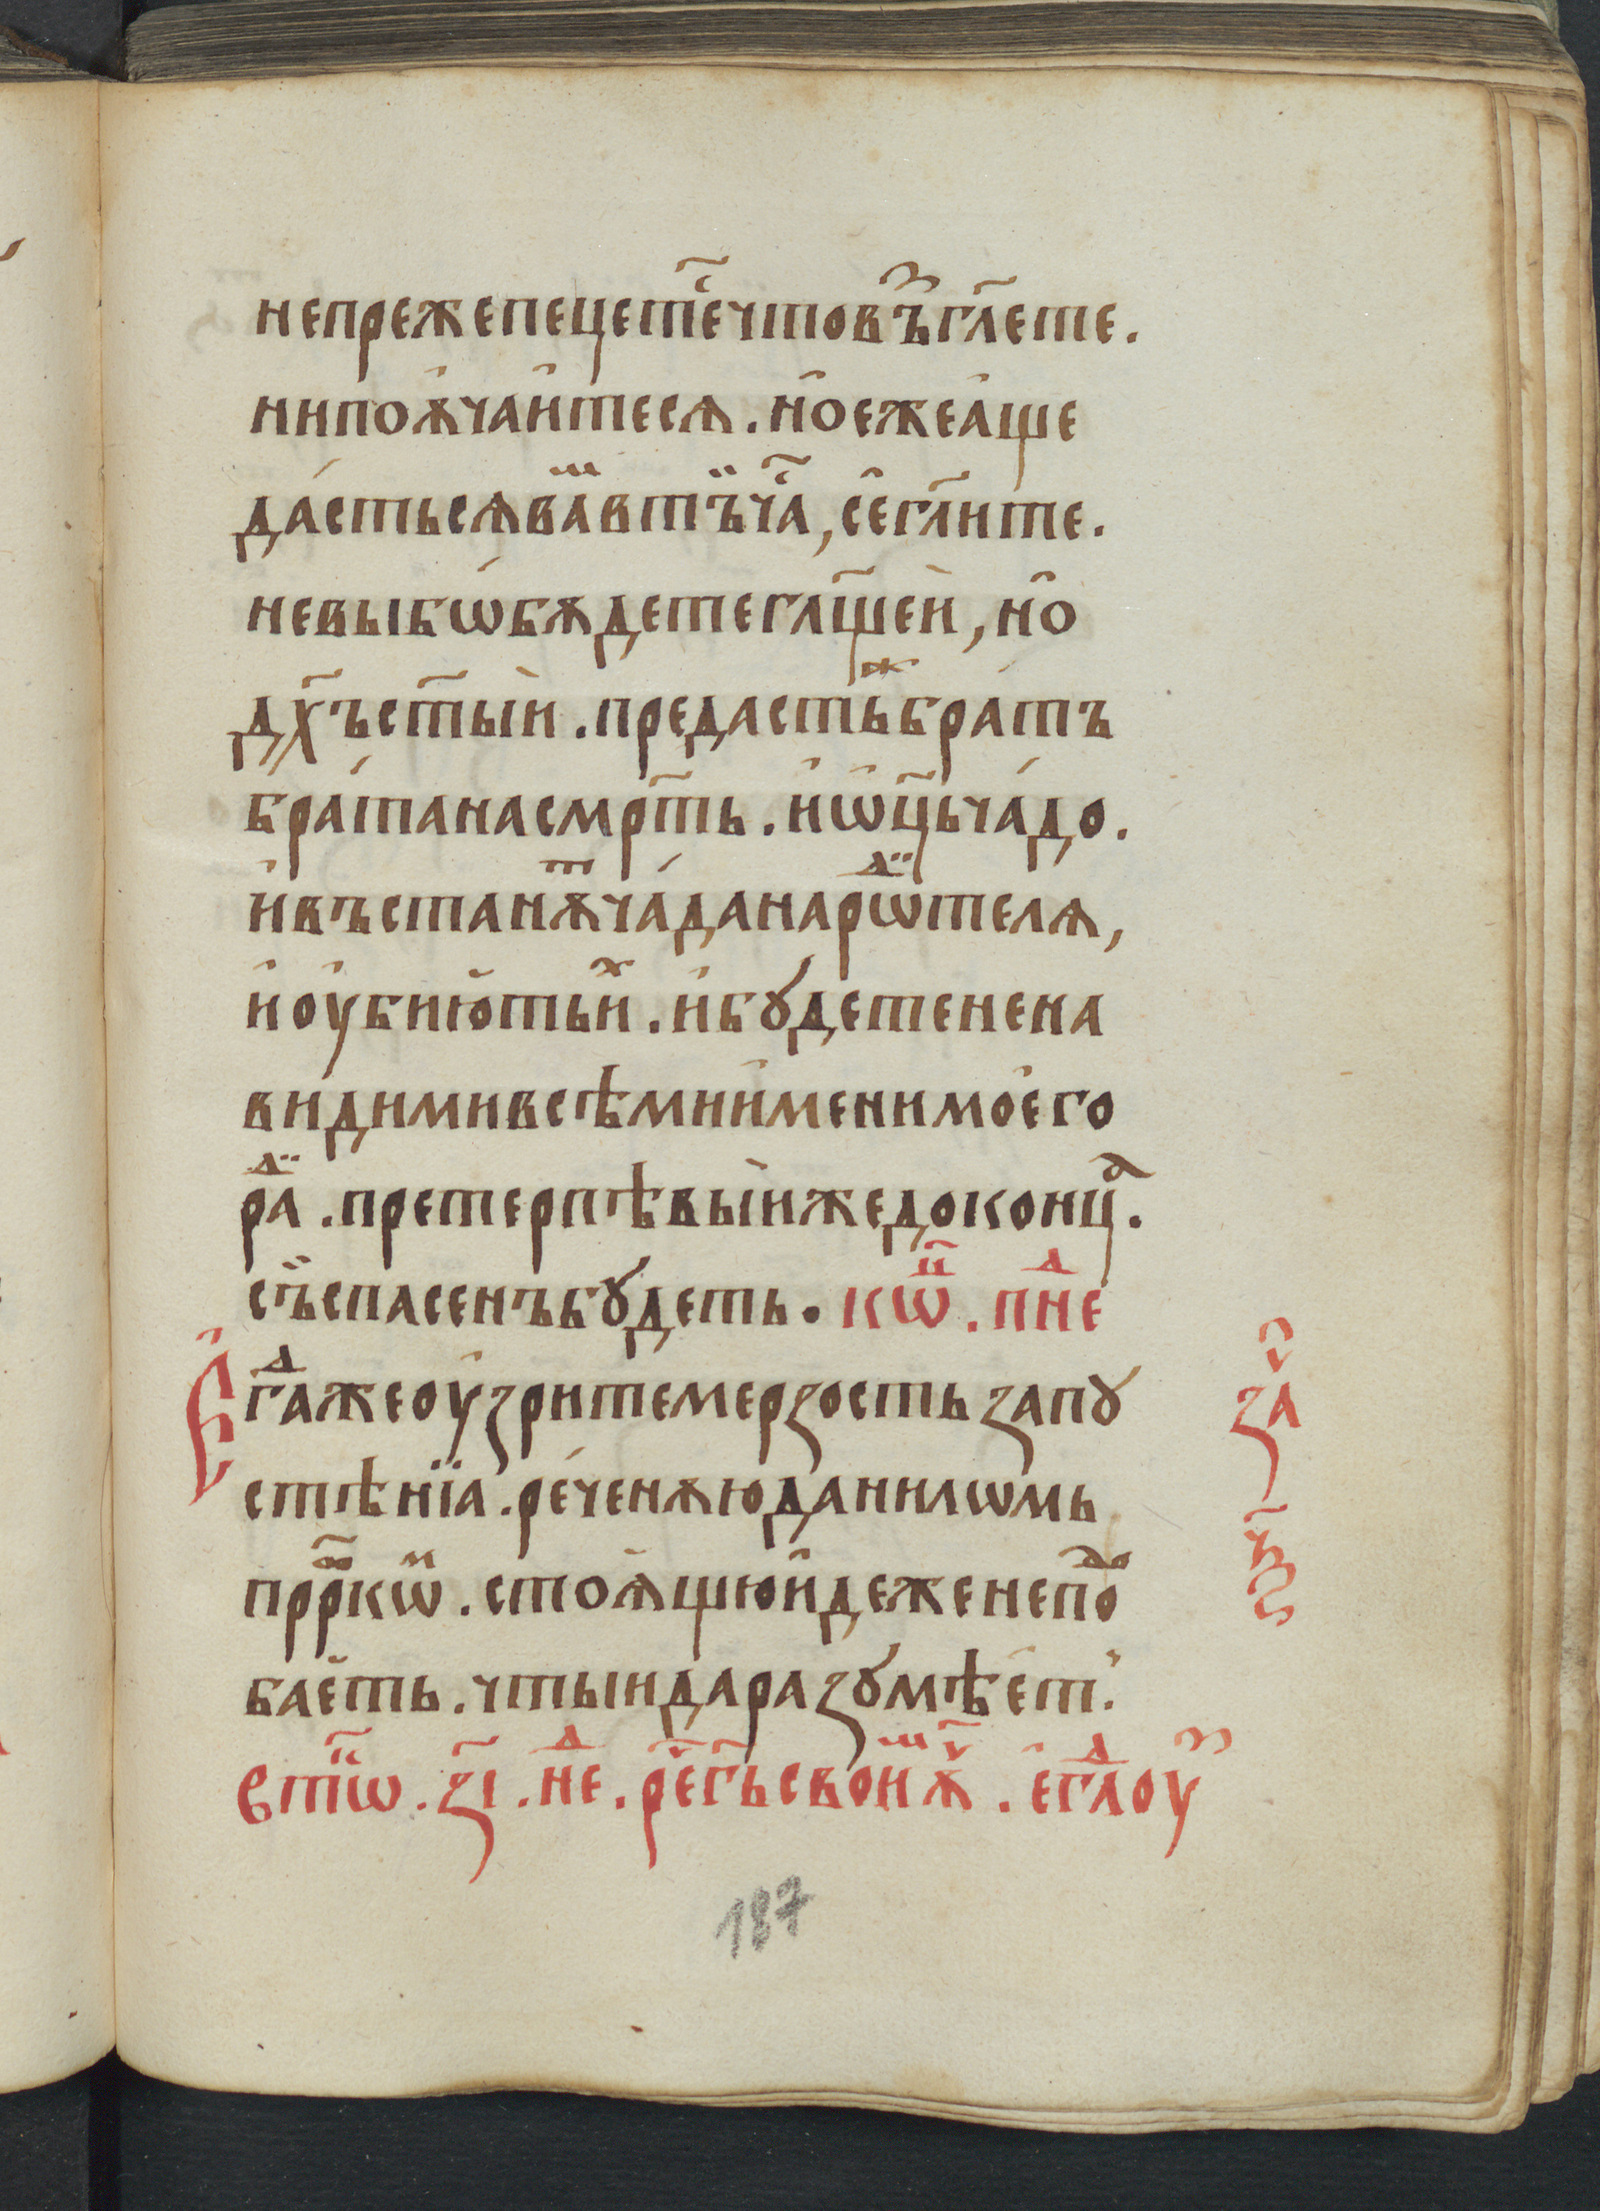 непрежепецетеⷭ҇чтовъꙁ҇гл҃ете.
нипоѫчаитесѧ. ноежеаще
да́стьсѧваⷨвтъ̏чаⷭ҇, се҆гл҃ите.
невыбѡбѫдетегл҃щеи, но҆
дх҃ъст҃ыи. предастьⷤбра́тъ
бра́танасмрт҃ь. и҆ѡ҆ц҃ьча́до.
и҆въстанѫⷮча́данарѡⷣ҇телѧ,
и҆оу҆бию҆тьиⷯ. и҆бꙋдетенена
видимивсѣмиименимоего
раⷣ. претерпѣвыижедоконцⷶ.
съ̏спасенъбꙋдеть. кѡⷩ҇. пнеⷣ
Е҆
гаⷣжеоуꙁритемерꙁостьꙁапꙋ
стѣнїа. ре́ченѫюданилѡмь
прⷪ҇ркѡⷨ. стоѧщюидеженепоⷣ
баеть. чтыидараꙁꙋмѣетʼ.
Втⷩ҇ѡ. ꙁ҃і. неⷣ. реⷱ҇гь҃своиⷨѫⷱ҇. егⷣлоуⷥ
ꙁаⷱ҇
н҃ꙁ
187